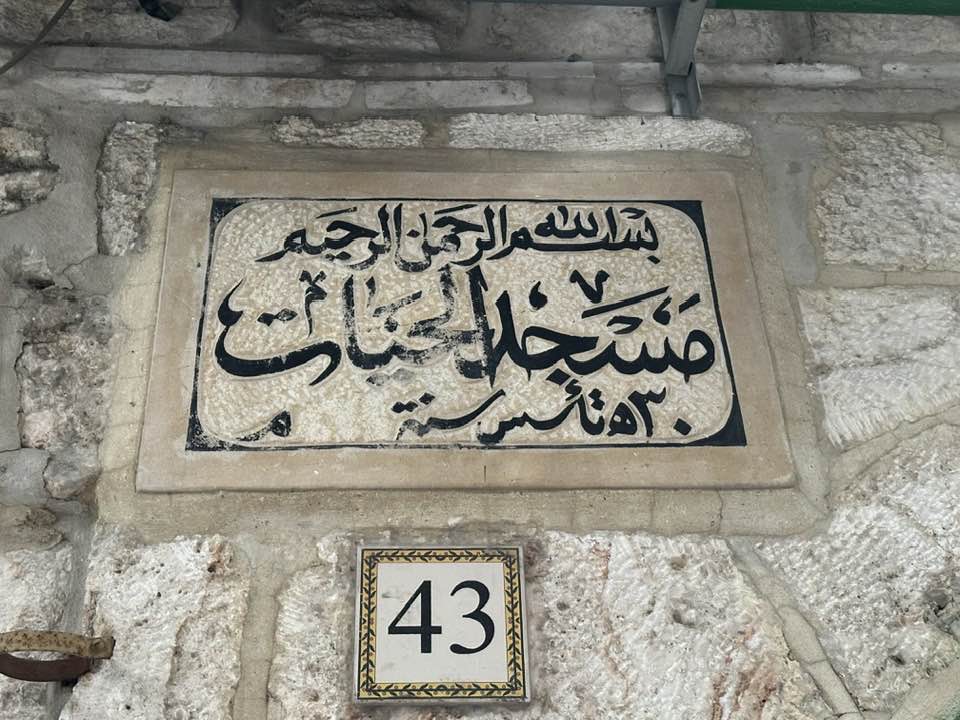 بسم الله الرحمن الرحيم
مسجد الحيات
٣٠ه تأسس سنة م
43